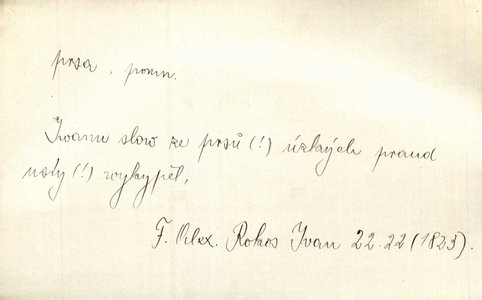 prsa, pomn.
Ivanu slow ze prsů (!) úzkých praud
usty (!) wykypěl,
F. Alex. Rokos Ivan 22.22 (1823).